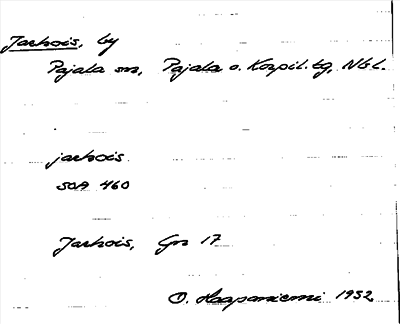 Jarhois, by
Pajala sn, Pajala o. Korpil. tg, Nb l.
jarhois
SOA 460
Jarhois, Gr 17
O. Haapaniemi 1932